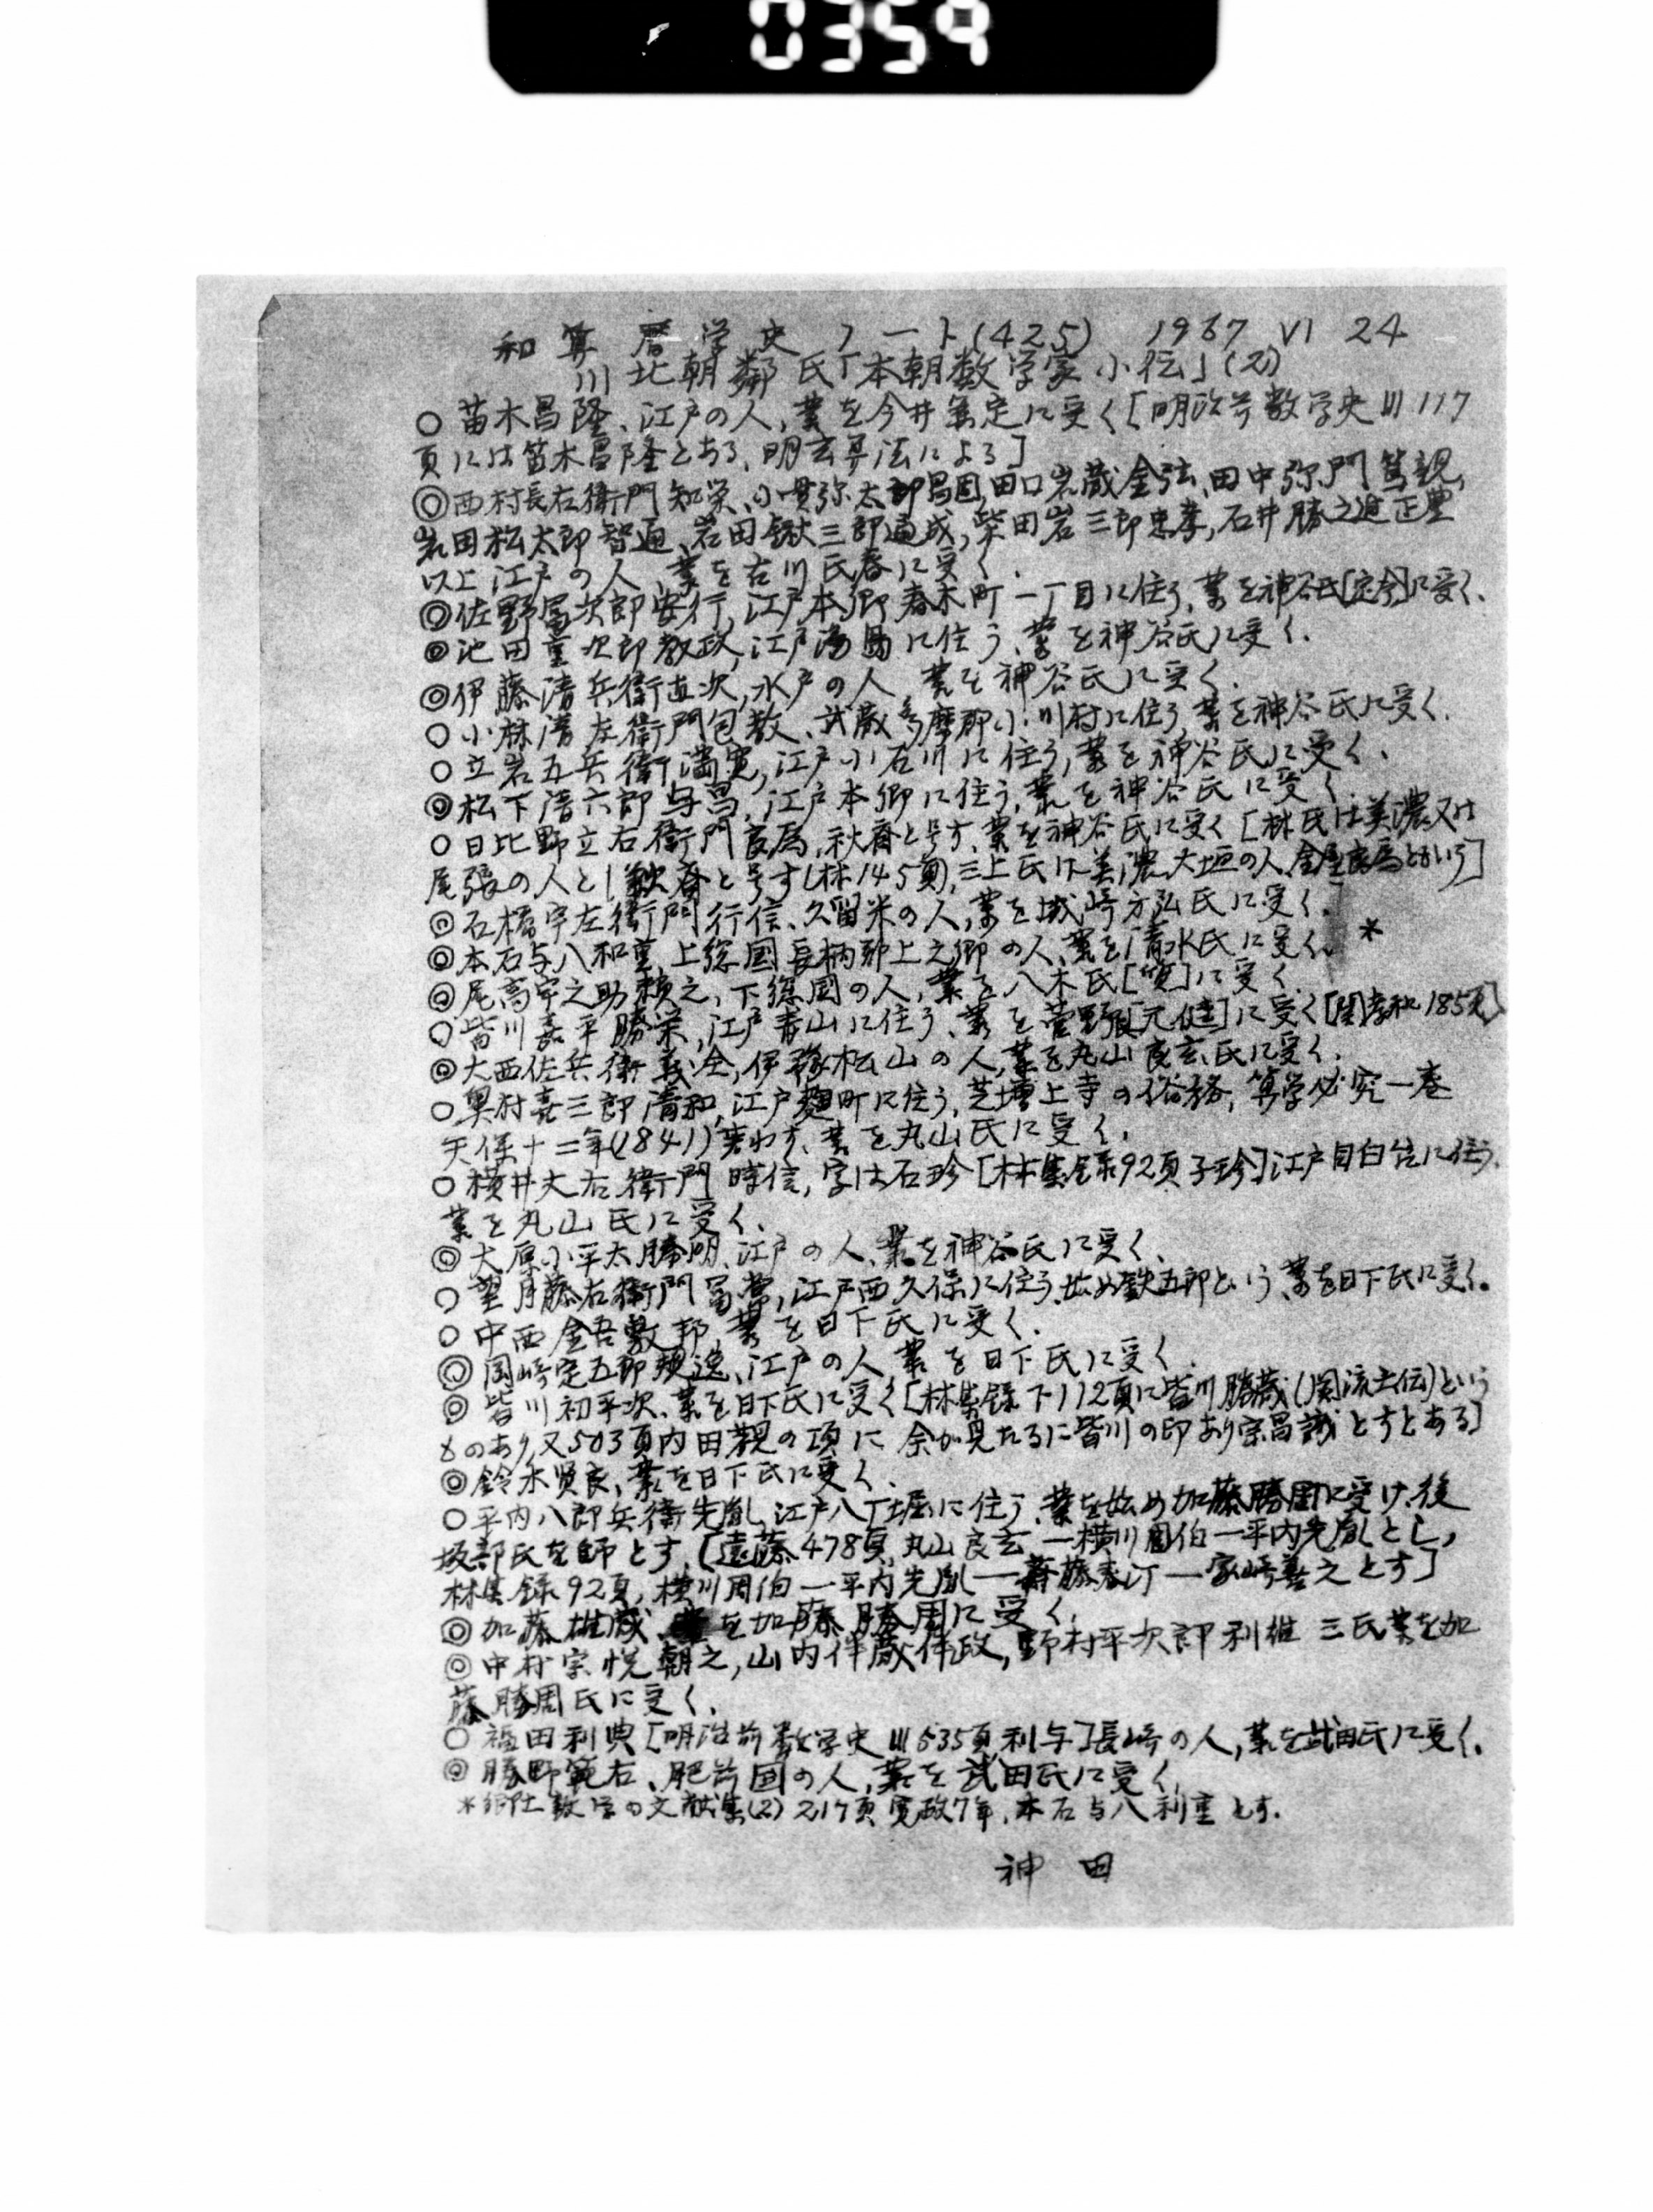 0359
和算暦学史ノート(425) 1967 VI 24
川北朝鄰氏「本朝数学家小伝」(2)
○苗木昌隆、江戸の人、業を今井兼定に受く[明治前数学史III 117
頁には笛木昌隆とある、明玄算法による]
◎西村長左衛門知栄、小貫弥太郎昌固、田口岩蔵金弦、田中弥門篤親、
岩田松太郎智通、岩田鍬三郎通成,柴田岩三郎忠孝,石井勝之進正豊
以上江戸の人、業を古川氏春に受く.
◎佐野冨次郎安行,江戸本郷春木町一丁目に住う、業を神谷氏[定令]に受く.
◎池田重次郎教政,江戸湯島に住う、業を神谷氏に受く.
◎伊藤清兵衛直次,水戸の人、業を神谷氏に受く.
○小林清左衛門包教、武蔵多摩郡小川村に住う、業を神谷氏に受く.
○立岩五兵衛満寛,江戸小石川に住う,業を神谷氏に受く.
◎松下清六郎与昌,江戸本郷に住う,業を神谷氏に受く.
○日比野立右衛門良為,秋斎と号す、業を神谷氏に受く[林氏は美濃又は
尾張の人とし鍬斎と号す(林145頁),三上氏は美濃大垣の人金屋良為とかいう]
◎石橋宇左衛門行信、久留米の人,業を城崎方弘氏に受く.
◎本石与八和重,上総国長柄郡上之郷の人、業を清水氏に受く. *
◎尾高宇之助積之、下総国の人,業を八木氏[質]に受く.
○皆川嘉平勝栄,江戸青山に住う、業を菅野氏[元健]に受く[関孝和185頁]
◎大西佐兵衛義全,伊豫松山の人,業を丸山良玄氏に受く.
○奥村喜三郎清和,江戸麹町に住う,芝増上寺の俗務,算学必究一巻
天保十二年(1841)著わす、業を丸山氏に受く.
○横井丈右衛門時信,字は石珍[林集録92頁子珍]江戸目白台に住う.
業を丸山氏に受く.
◎大原小平太勝明、江戸の人、業を神谷氏に受く.
○望月藤右衛門冨常,江戸西久保に住う、始め鉄五郎という、業を日下氏に受く.
○中西金吾敷邦,業を日下氏に受く.
◎岡崎定五郎規遠、江戸の人業を日下氏に受く.
◎皆川初平次、業を日下氏に受く[林集録下112頁に皆川勝蔵(関流士伝)という
ものあり,又503頁内田観の項に余が見たるに皆川の印あり宗昌識とすとある]
◎鈴木賢良、業を日下氏に受く.
○平内八郎兵衛先胤,江戸八丁堀に住う、業を始め加藤勝周に受け、後
坂部氏を師とす、[遠藤478頁,丸山良玄―横川周伯―平内先胤とし,
林集録92頁,横川周伯―平内先胤―斎藤春汀―家崎善之とす]
◎加藤雄蔵、業を加藤勝周に受く.
◎中村宗悦朝之,山内伴蔵伴政,野村平次郎利雄三氏業を加
藤勝周氏に受く.
○福田利典[明治前数学史III 535頁利与]長崎の人,業を武田氏に受く.
◎勝野範右、肥前国の人、業を武田氏に受く.
*郷土数学の文献集(2) 217頁寛政7年、本石与八利重とす.
神田